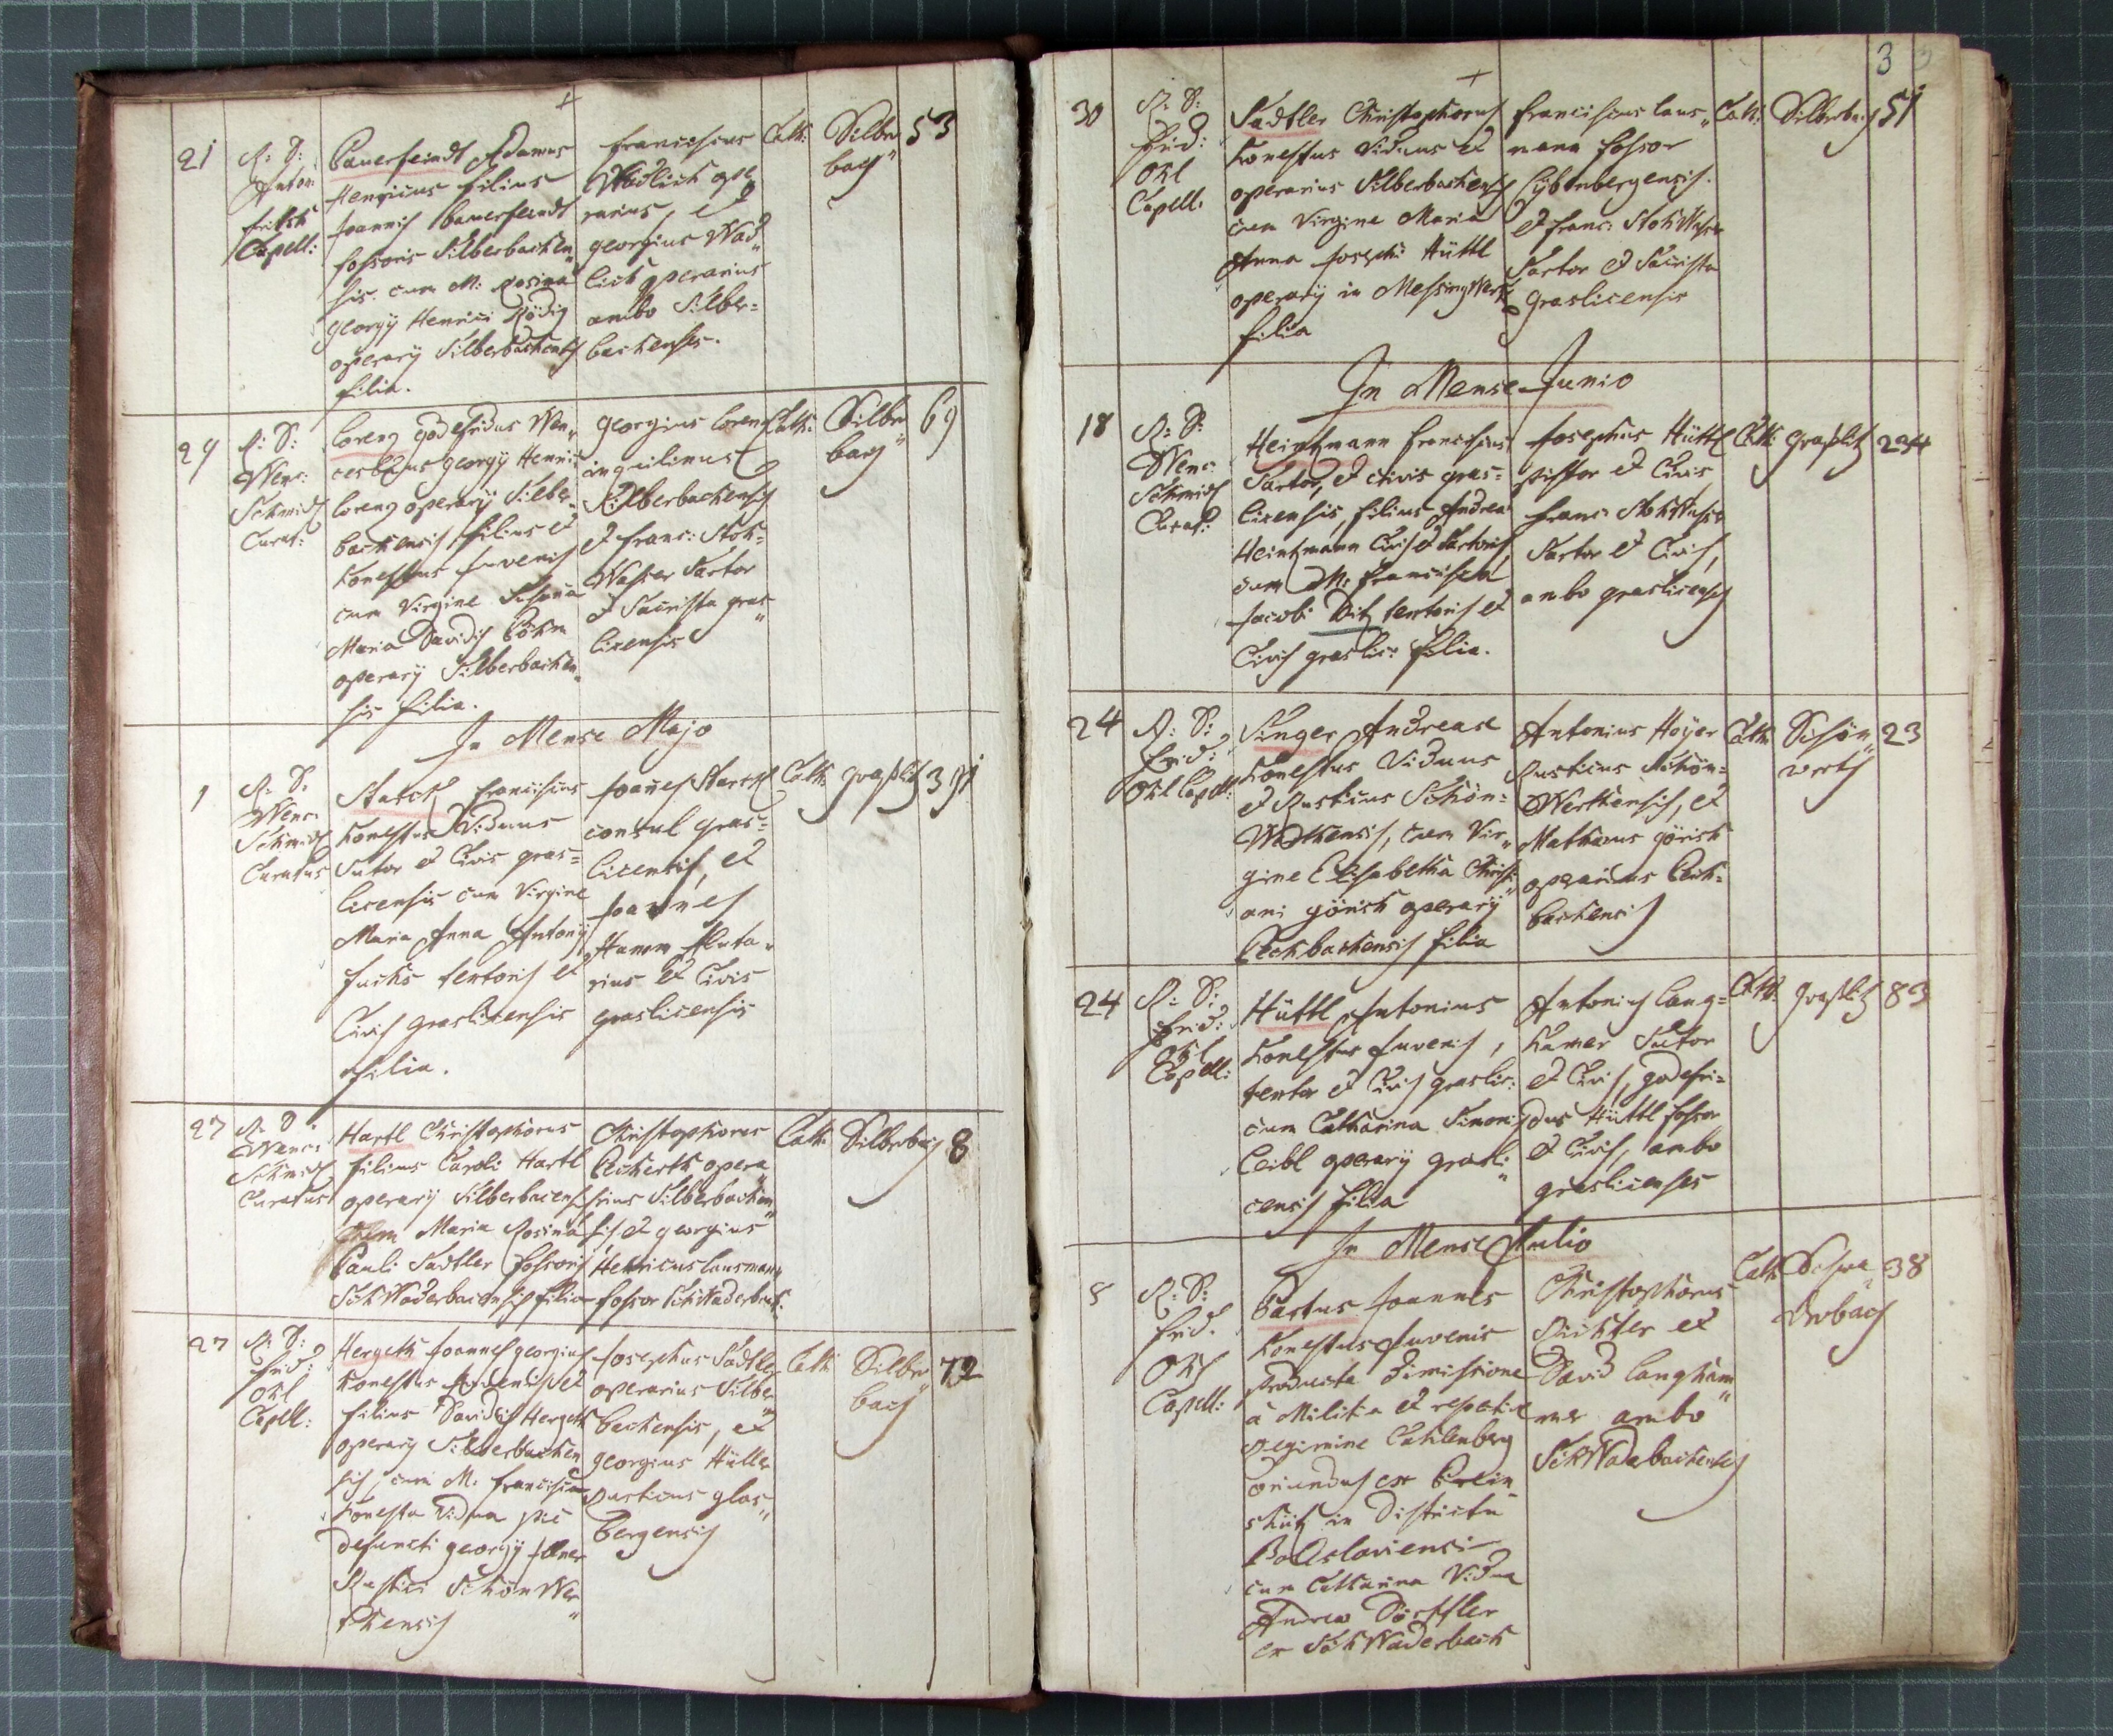 21
R: D:
Anton
fritsch
Capell:
Bauerfeindt Adamus
Henricus filius
Joannis bauerfeindt
fossoris Silberbachen„
sis. cum M: Rosina
georgÿ Henrici
operarÿ Silberbachensis
filia.
franciscus
Wädlich ope„
rarius, et
georgius Wäd„
lich operarius
ambo Silber=
bachenses.
Cath:
Silber„
bach
53
29
R: D:
Wenc:
Schmidt
Curat:
Lorenz godefridus Wen„
ceslaus georgÿ Henrici
Lorenz operarÿ Silber„
bachensis filius et
honestus Juvenis
cum Virgine Susana
Maria Davidis Böhm
operarÿ Silberbachen„
sis filia.
georgius Lorenz
inquilinus
Silberbachensis
et franc: Stoh=
Wasser Sartor
et Sacrista gras„
licensis
Cath:
Silber„
bach
69
In Mense Majo
1
R: D:
Wenc:
Schmidt
Curatus
Starck franciscus
honestus Viduus
Sutor et Civis gras=
licensis cum Virgine
Maria Anna Antonÿ
fuchs textoris et
Civis graslicensis
filia.
Joannes Starck
consul gras=
licensis, et
Joannes
Hamm
rius et Civis
graslicensis
Cath:
graßlitz
391
27
R: D:
Wenc:
Schmidt
Curatus
Hartl Christophorus
filius Caroli Hartl
operarÿ Silberbacensis
cum Maria Rosina
Pauli Sadtler fossoris
SchWaderbacensis filia
Christophorus
opera„
rius Silberbachen„
sis et georgius
Henricus lausmann
fossor SchWaderbach:
Cath:
Silberbach
8
27
R: D:
frid:
Okl
Capell:
Hergeth Joannes georgius
honestus Juvenis et
filius Davidis Hergeth
operarÿ Silberbachen
sis, cum M: francisca
honesta Vidua pie
defuncti georgÿ
Rustici SchönWer„
thensis
Josephus Sadtler
operarius Silber„
bachensis, et
georgius Hüller
Rusticus glas„
bergensis
Cath:
Silber„
bach
72
3
30
R: D:
frid:
Okl
Capell:
Sadtler Christophorus
honestus Viduus et
operarius Silberbachensis
cum Virgine Maria
Anna Josephi Hüttl
operarÿ in MessingWerk
filia
franciscus laus„
mann fossor
Eÿbenbergensis.
et franc: StohWasser
Sartor et Sacrista
graslicensis
Cath:
Silberbach
51
In Mense Junio
18
R: D:
Wenc:
Schmidt
Curat:
Heintzmann franciscus
Sartor, et civis gras=
licensis, filius Andreae
Heintzmann Civis et Sartoris,
cum M: francisca
Jacobi Ditz textoris et
Civis graslic: filia.
Josephus Hüttl
pistor et Civis
franc: StohWasser
Sartor et Civis,
ambo graslicenses
Cath:
graßlitz
254
24
R: D:
frid:
Okl Capell:
Singer Andreas
honestus Viduus
et Rusticus Schön=
Werthensis, cum Vir„
gine Elisabetha Christi„
ani görisch operarÿ
Eichbachensis filia
Antonius Hoÿer
Rusticus Schön=
Werthensis, et
Mathaeus görisch
operarius Eich=
bachensis
Cath:
Schön„
werth
23
24
R: D:
frid:
Okl
Capell:
Hüttl Antonius
honestus Juvenis,
textor et Civis graslic:
cum Catharina Simonis
Leibl operarÿ grasli„
censis filia
Antonius Lang=
hamer Sutor
et Civis, godefri=
dus Hüttl fossor
et Civis, ambo
graslicenses
Cath:
graßlitz
83
In Mense Julio
8
R: D:
frid.
Okl
Capell:
Bartus Joannes
honestus Juvenis
producta dimissione
à Militia et
Regimine Cahlenberg
oriundus ex
in Districtu
Boleslaviensi
cum Catharina Vidua
Andreae Dörffler
ex SchWaderbach
Christophorus
Richter et
David Langham„
mer ambo
SchWaderbachenses
Cath:
Schwa„
derbach
38